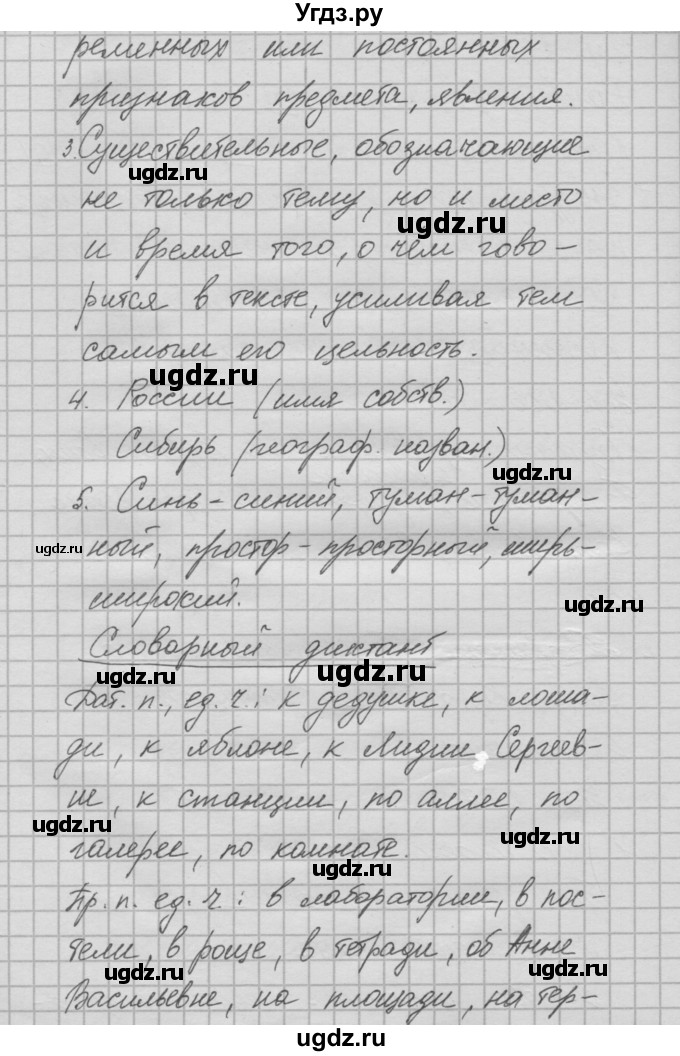 Угдз.ру
ременных или постоянных
признаков предмета, явления.
3. Существительные, обозначающие
ugdz.ru
не только тему, но и место
ugdz.ru
и время того, о чем гово-
рится в тексте, усиливая тем
самым его цельность.
ugdz.ru
4. России (имя собств.)
Сибирь (географ. назван.)
ugdz.ru
5. Синь-синий, туман-туман-
ugdz.ru
ный, простор-просторный, ширь-
широкий.
ugdz.ru
Словарный диктант
ugdz.ru
ugdz.ru
Дат. п., ед. ч.: к дедушке, к лоша-
ди, к яблоне, к Лидии Сергеев-
не, к станции, по аллее, по
ugdz.ru
ugdz.ru
галерее, по комнате.
Пр. п. ед. ч.: в лаборатории, в пос-
тели, в роще, в тетради, об Анне
ugdz.ru
ugdz.ru
Васильевне, на площади, на тер-
ugdz.ru